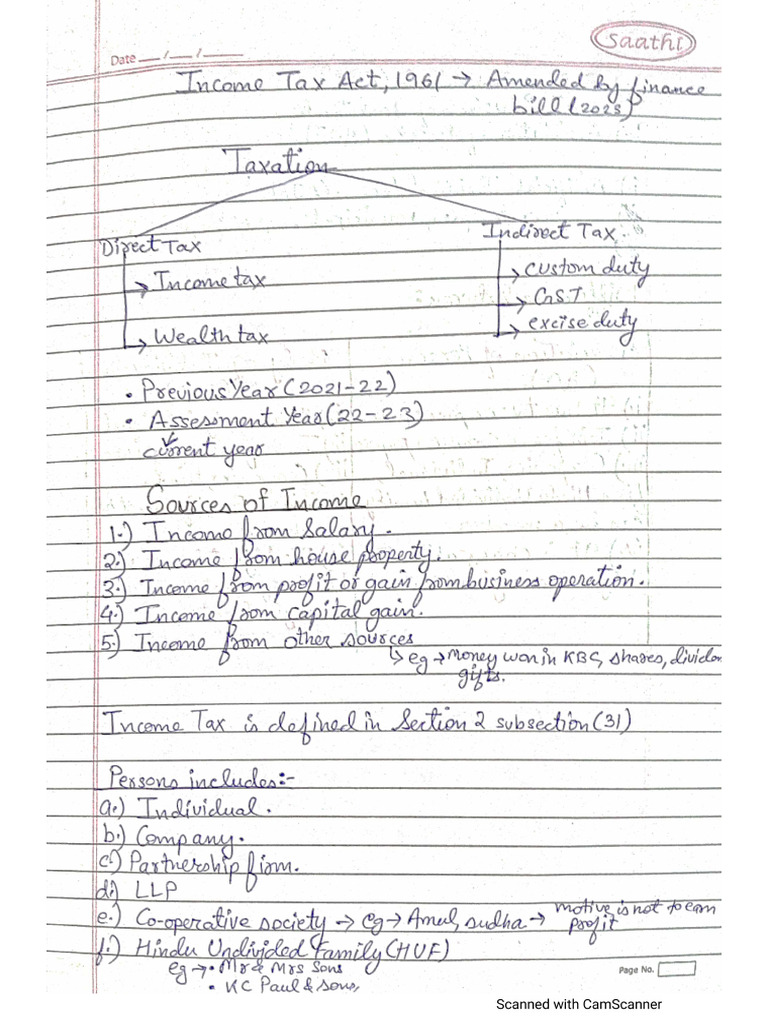 Saathi
Date __/__/____
Income Tax Act, 1961 → Amended by finance
bill (2023)
Taxation
Direct Tax
Indirect Tax.
→ Income tax
→ Wealth tax
→ custom duty
→ GST
→ excise duty
• Previous Year (2021-22)
• Assessment Year (22-23)
current year
Sources of Income
1.) Income from Salary.
2.) Income from house property.
3.) Income from profit or gain from business operation.
4.) Income from capital gain.
5.) Income from other sources
↳ eg → Money won in KBC, shares, dividen
gifts.
Income Tax is defined in Section 2 subsection (31)
Persons includes:-
a.) Individual.
b.) Company.
c.) Partnership firm.
d.) LLP
e.) Co-operative society → eg → Amul, sudha → motive is not to earn
profit
f.) Hindu Undivided Family (HUF)
eg → • Mr & Mrs Sons
• KC Paul & sons,
Page No.
Scanned with CamScanner